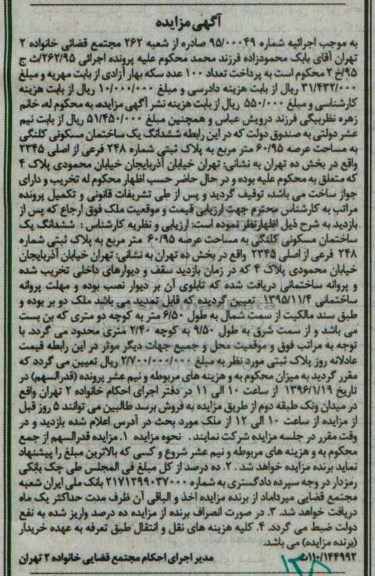 آگهی مزایده
به موجب اجرائیه شماره ۹۵/۰۰۰۴۹ صادره از شعبه ۲۶۲ مجتمع قضائی خانواده ۲
تهران آقای بابک محمودزاده فرزند محمد محکوم علیه پرونده اجرائی ۲۶۲/۹۵/ث ج
۹۵/خ ۲ محکوم است به پرداخت تعداد ۱۰۰ عدد سکه بهار آزادی از بابت مهریه و مبلغ
۳۱/۴۳۲/۰۰۰ ریال از بابت هزینه دادرسی و مبلغ ۱۰/۰۰۰/۰۰۰ ریال از بابت هزینه
کارشناسی و مبلغ ۵۵۰/۰۰۰ ریال از بابت هزینه نشر آگهی مزایده، به محکوم له، خانم
زهره نظربیگی فرزند درویش عباس و همچنین مبلغ ۵۱/۴۵۰/۰۰۰ ریال از بابت نیم
عشر دولتی به صندوق دولت که در این رابطه ششدانگ یک ساختمان مسکونی کلنگی
به مساحت عرصه ۶۰/۹۵ متر مربع به پلاک ثبتی شماره ۲۴۸ فرعی از اصلی ۲۳۴۵
واقع در بخش ده تهران به نشانی: تهران خیابان آذربایجان خیابان محمودی پلاک ۴
که متعلق به محکوم علیه بوده و در حال حاضر حسب اظهار محکوم له تخریب و دارای
جواز ساخت می باشد، توقیف گردید و پس از طی تشریفات قانونی و تکمیل پرونده
مراتب به کارشناس محترم جهت ارزیابی قیمت و موقعیت ملک فوق ارجاع که پس از
بازدید به شرح ذیل اظهارنظر نموده است: ارزیابی و نظریه کارشناس : ششدانگ یک
ساختمان مسکونی کلنگی به مساحت عرصه ۶۰/۹۵ متر مربع به پلاک ثبتی شماره
۲۴۸ فرعی از اصلی ۲۳۴۵ واقع در بخش ده تهران به نشانی: تهران خیابان آذربایجان
خیابان محمودی پلاک ۴ که در زمان بازدید سقف و دیوارهای داخلی تخریب شده
و پروانه ساختمانی دریافت شده که تابلوی آن بر دیوار نصب بوده و مهلت پروانه
ساختمانی ۱۳۹۵/۱۱/۴ تعیین گردیده که قابل تمدید می باشد، ملک دو بر بوده و
طبق سند مالکیت از سمت شمال به طول ۶/۵۰ متر به کوچه دو متری که بن بست
می باشد و از سمت شرق به طول ۹/۵۰ به کوچه ۲/۴۰ متری محدود می گردد. با
توجه به مراتب فوق و موقعیت محل و جمیع جهات دیگر موثر در این رابطه قیمت
عادلانه روز پلاک ثبتی مورد نظر به مبلغ ۲/۷۰۰/۰۰۰/۰۰۰ ریال تعیین می گردد که
مقرر گردید به میزان محکوم به و هزینه های مربوطه و نیم عشر پرونده (قدرالسهم) در
تاریخ ۱۳۹۶/۱/۱۹ از ساعت ۱۰ الی ۱۱ در دفتر اجرای احکام خانواده ۲ تهران واقع
در میدان ونک طبقه دوم از طریق مزایده به فروش برسد طالبین می توانند ۵ روز قبل
از مزایده از ساعت ۱۰ الی ۱۲ از ملک مورد بحث در آدرس اعلام شده بازدید و در
وقت مقرر در جلسه مزایده شرکت نمایند. نحوه مزایده ۱. مزایده قدرالسهم از جمع
محکوم به و هزینه های مربوطه و نیم عشر شروع و کسی که بالاترین مبلغ را پیشنهاد
نماید برنده مزایده خواهد شد. ۲. ده درصد از کل مبلغ فی المجلس طی چک بانکی
رمزدار در وجه سپرده دادگستری به شماره ۲۱۷۱۲۹۹۰۳۷۰۰۰ بانک ملی ایران شعبه
مجتمع قضایی میرداماد از برنده مزایده اخذ و الباقی آن ظرف مدت حداکثر یک ماه
دریافت خواهد شد. ۳. در صورت انصراف برنده از مزایده ده درصد واریز شده به نفع
دولت ضبط می گردد. ۴. کلیه هزینه های نقل و انتقال طبق تعرفه به عهده خریدار
(برنده مزایده) می باشد.
۱۱۰/۱۴۴۹۹۲ مدیر اجرای احکام مجتمع قضایی خانواده ۲ تهران